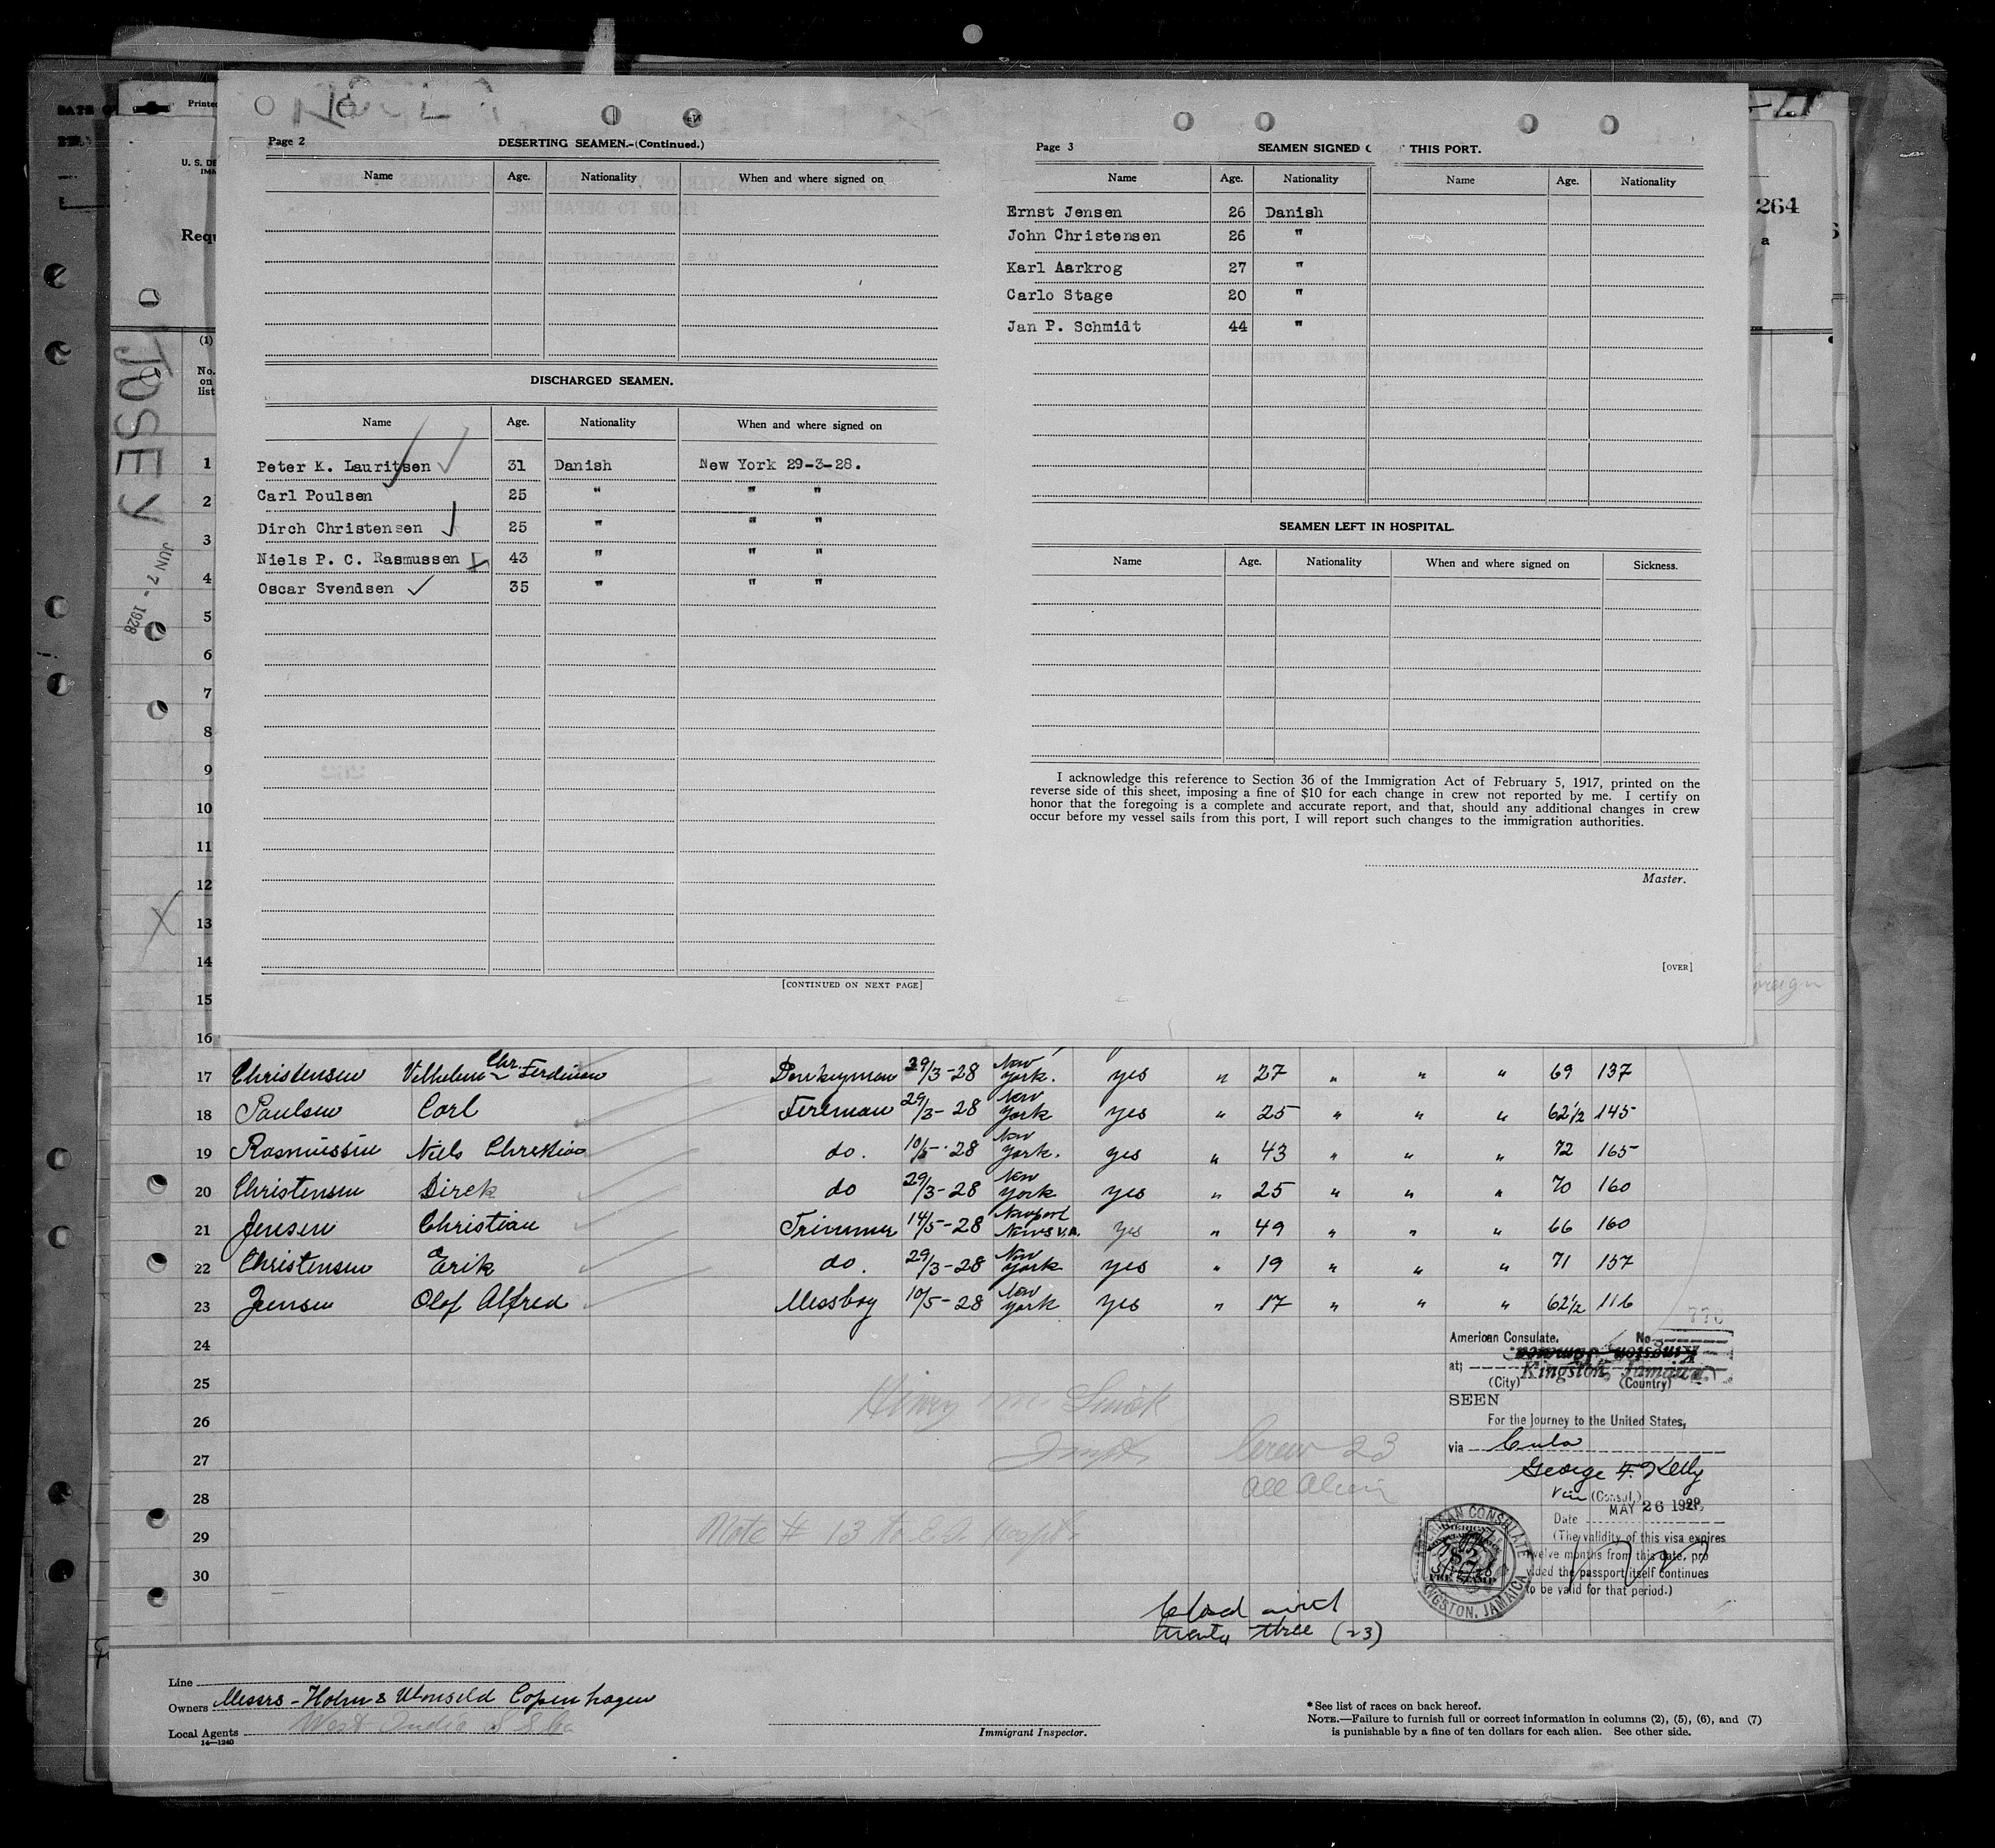 Page 2
DESERTING SEAMEN.-(Continued.)
Name Age. Nationality When and where signed on
DISCHARGED SEAMEN.
Name Age. Nationality When and where signed on
Peter K. Lauritsen 31 Danish New York 29-3-28.
Carl Poulsen 25 " " "
Dirch Christensen 25 " " "
Niels P. C. Rasmussen 43 " " "
Oscar Svendsen 35 " " "
[CONTINUED ON NEXT PAGE]
Page 3
SEAMEN SIGNED THIS PORT.
Name Age. Nationality Name Age. Nationality
Ernst Jensen 26 Danish
John Christensen 26 "
Karl Aarkrog 27 "
Carlo Stage 20 "
Jan P. Schmidt 44 "
SEAMEN LEFT IN HOSPITAL.
Name Age. Nationality When and where signed on Sickness.
I acknowledge this reference to Section 36 of the Immigration Act of February 5, 1917, printed on the
reverse side of this sheet, imposing a fine of $10 for each change in crew not reported by me. I certify on
honor that the foregoing is a complete and accurate report, and that, should any additional changes in crew
occur before my vessel sails from this port, I will report such changes to the immigration authorities.
Master.
[OVER]
Printed
U. S. DE
IMM
Requ
264
a
(1)
No.
on
list
JOSEY
JUN 7 - 1928
1
2
3
4
5
6
7
8
9
10
11
12
13
14
15
16
17 Christensen Vilhelm Chr. Ferdinan Donkeyman 29/3-28 New York. yes " 27 " " " 69 137
18 Paulsen Carl Fireman 29/3-28 New York yes " 25 " " " 62 1/2 145
19 Rasmussen Niels Christian do. 10/5-28 New York. yes " 43 " " " 72 165
20 Christensen Dirck do 29/3-28 New York yes " 25 " " " 70 160
21 Jensen Christian Trimmer 14/5-28 Newport News V.A. yes " 49 " " " 66 160
22 Christensen Erik do. 29/3-28 New York yes " 19 " " " 71 157
23 Jensen Olof Alfred Messboy 10/5-28 New York yes " 17 " " " 62 1/2 116
24
25
26
27
28
29
30
Crew 23
all Alien
American Consulate, No.
at; Kingston, Jamaica
(City) (Country)
SEEN
For the Journey to the United States,
via Cuba
George F. Kelly
Vice (Consul.)
MAY 26 1928
Date
(The validity of this visa expires
twelve months from this date, pro
vided the passport itself continues
to be valid for that period.)
AMERICAN CONSULATE
KINGSTON, JAMAICA
$2
FEE STAMP
Closed with
twenty three (23)
Line
Owners Messrs - Holm & Wonsild Copenhagen
Local Agents West India S S Co
14—1240
Immigrant Inspector.
*See list of races on back hereof.
NOTE.—Failure to furnish full or correct information in columns (2), (5), (6), and (7)
is punishable by a fine of ten dollars for each alien. See other side.